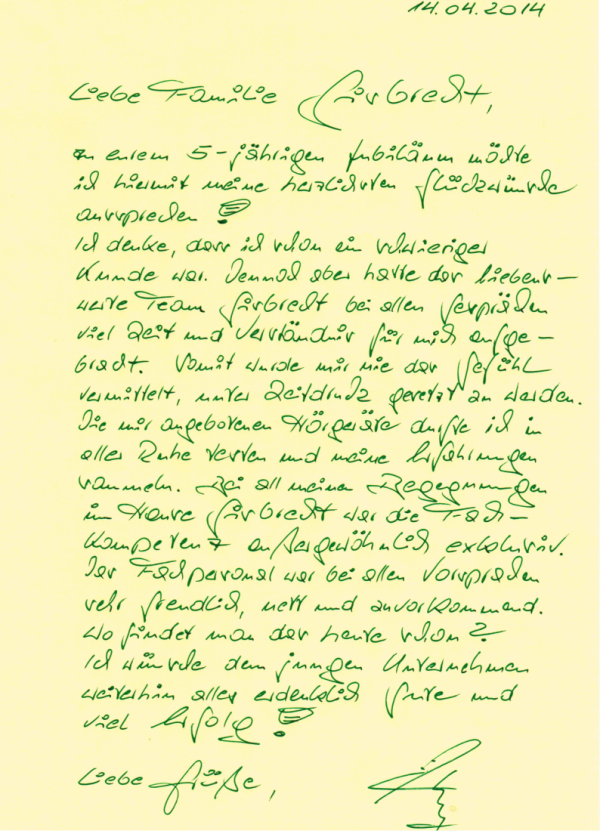 14.04.2014
Liebe Familie Fürbrecht,
zu eurem 5-jährigen Jubiläum möchte
ich hiermit meine herzlichsten Glückwünsche
aussprechen!
Ich denke, dass ich schon ein schwieriger
Kunde war. Dennoch aber hatte das liebens-
werte Team Fürbrecht bei allen Gesprächen
viel Zeit und Verständnis für mich aufge-
bracht. Somit wurde mir nie das Gefühl
vermittelt, unter Zeitdruck gesetzt zu werden.
Die mir angebotenen Hörgeräte durfte ich in
aller Ruhe testen und meine Erfahrungen
sammeln. Bei all meinen Begegnungen
im Hause Fürbrecht war die Fach-
kompetenz außergewöhnlich exklusiv.
Das Fachpersonal war bei allen Vorsprachen
sehr freundlich, nett und zuvorkommend.
Wo findet man das heute schon?
Ich wünsche dem jungen Unternehmen
weiterhin alles erdenklich Gute und
viel Erfolg!
Liebe Grüße,